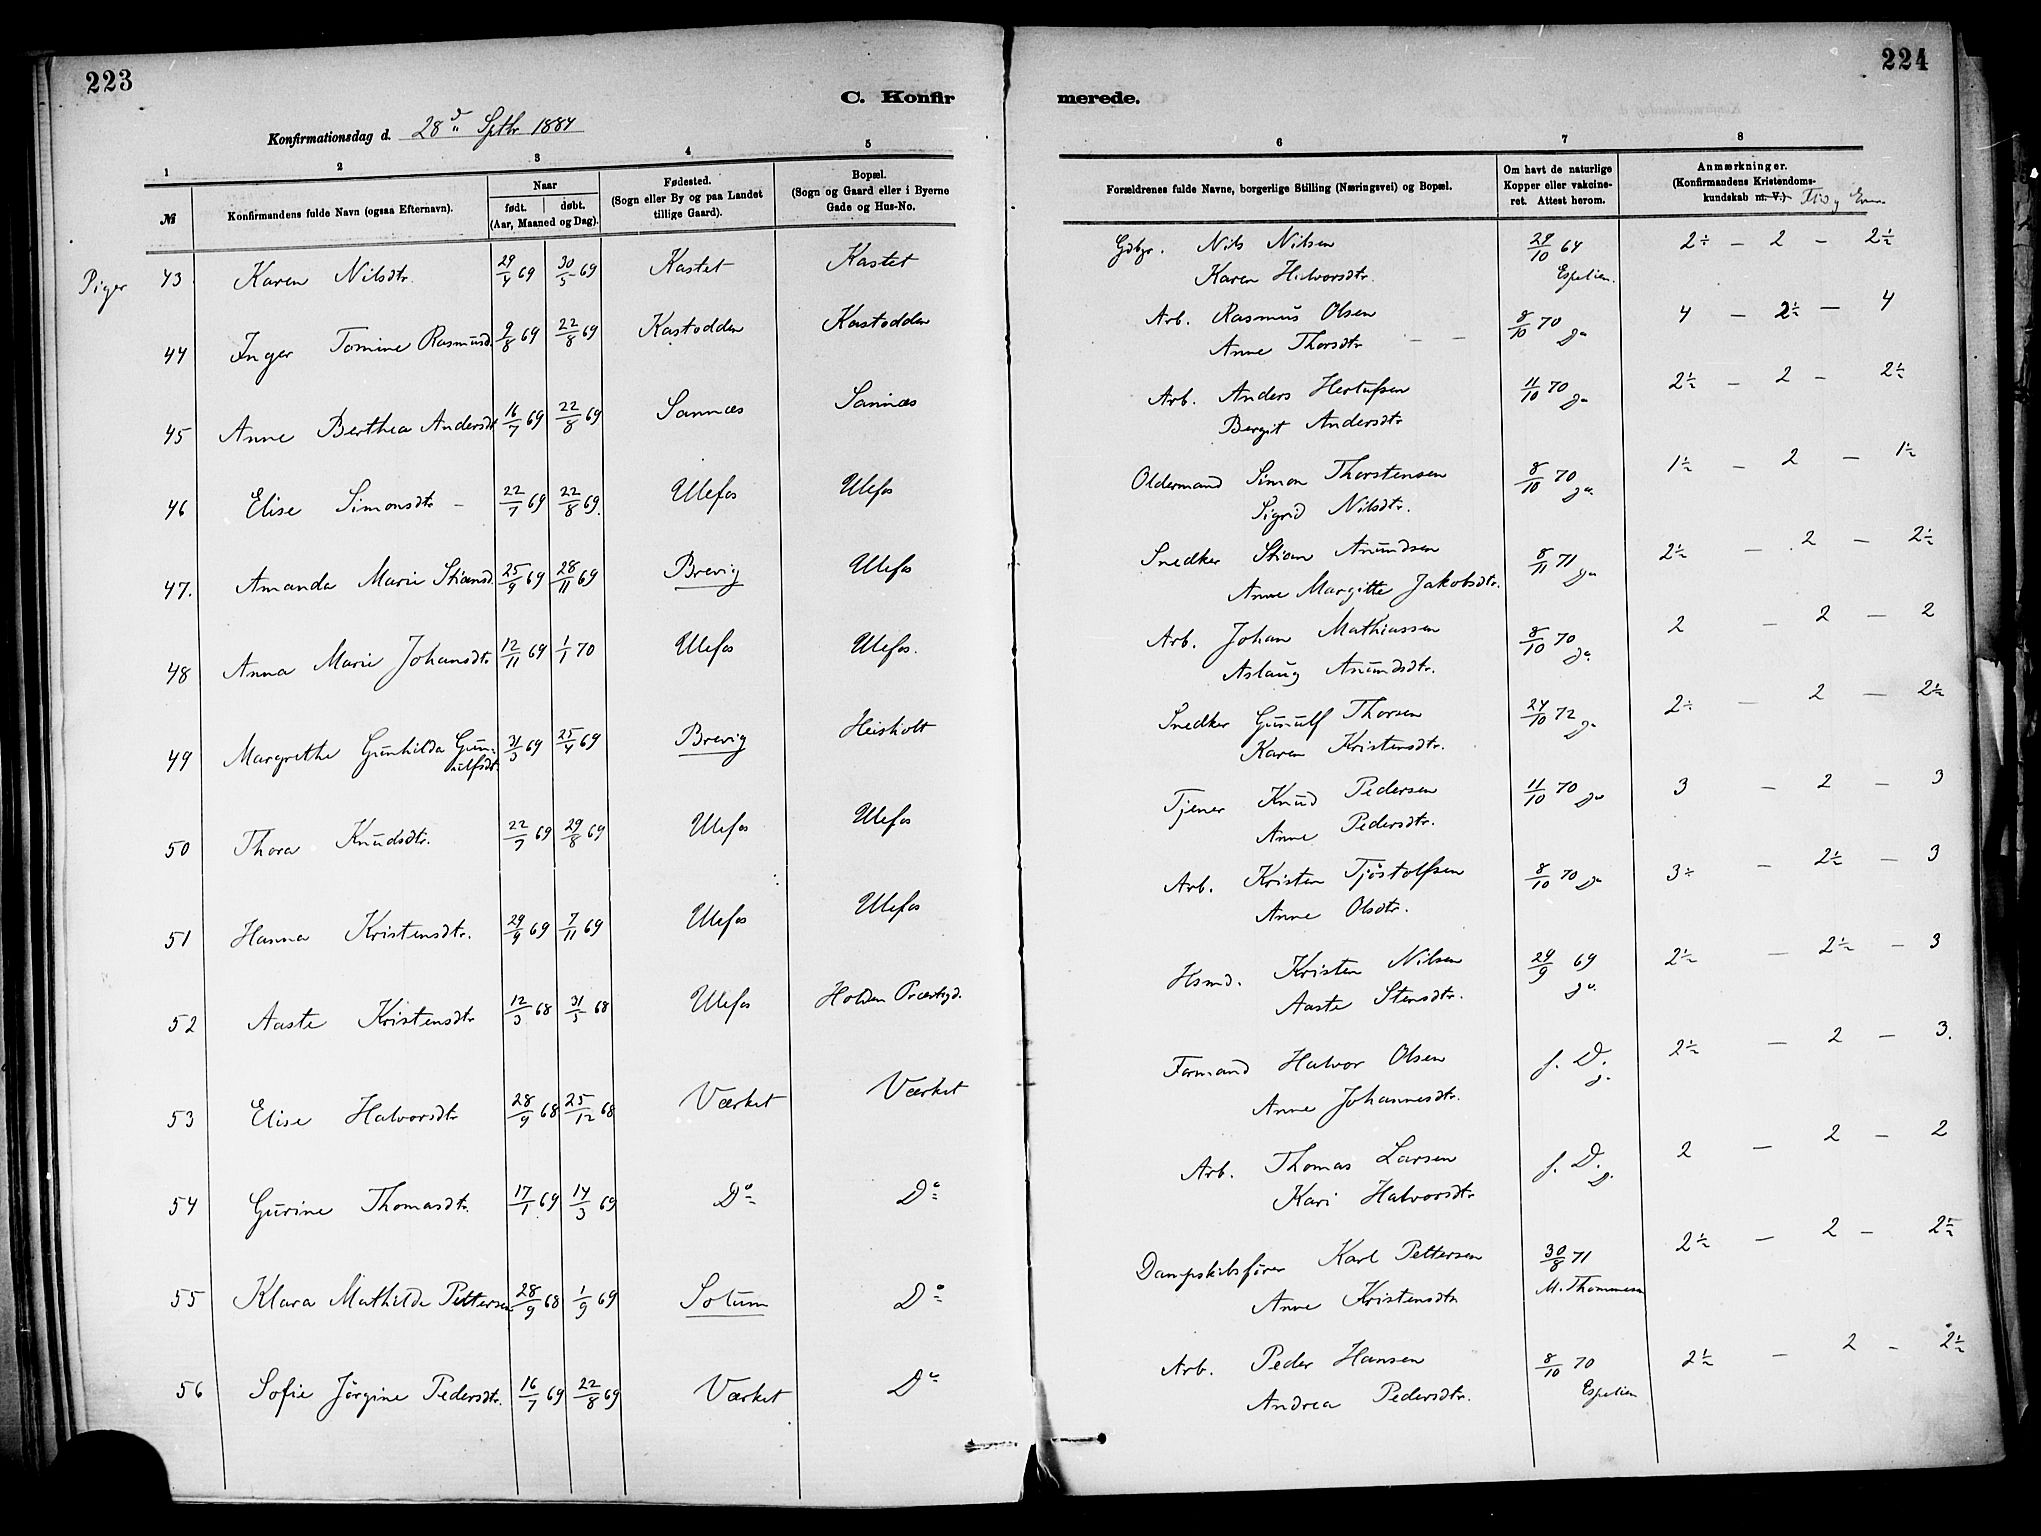 223
224
C. Konfir
merede.
Konfirmationsdag d. 28d Sptbr 1884
1 2 3 4 5 6 7 8
№
Konfirmandens fulde Navn (ogsaa Efternavn).
Naar
født. døbt.
(Aar, Maaned og Dag).
Fødested.
(Sogn eller By og paa Landet
tillige Gaard).
Bopæl.
(Sogn og Gaard eller i Byerne
Gade og Hus-No.
Forældrenes fulde Navne, borgerlige Stilling (Næringsvei) og Bopæl.
Om havt de naturlige
Kopper eller vakcine-
ret. Attest herom.
Anmærkninger.
(Konfirmandens Kristendoms-
kundskab m. V.) Flid og
Piger 43 Karen Nilsdtr. 29/4 69 30/5 69 Kastet Kastet Gdbgr. Nils Nilsen 24/10 64 2÷ – 2 – 2½
Karen Halvorsdtr. Espelien.
44 Inger Tomine Rasmusd. 9/8 69 22/8 69 Kastodden Kastodden Arb. Rasmus Olsen 8/10 70 4 – 2½ – 4
Anne Thorsdtr – – do
45 Anne Berthea Andersdt 16/7 69 22/8 69 Sannæs Sannæs Arb. Anders Hertufsen 11/10 70 do 2½ – 2 – 2½
Bergit Andersdtr
46 Elise Simonsdtr – 22/7 69 22/8 69. Ulefos Ulefos Oldermand Simon Thorstensen 8/10 70 do. 1½ – 2 – 1½
Sigrid Nilsdtr.
47. Amanda Marie Stiansd. 25/9 69 28/11 69 Brevig Ulefos Snedker Stian Amundsen 8/11 71 do 2½ – 2 – 2½
Anne Margitte Jakobsdtr.
48 Anna Marie Johansdtr 12/11 69 1/1 70 Ulefos Ulefos. Arb. Johan Mathiassen 8/10 70 do. 2 – 2 – 2
Aslaug Amundsdtr.
49 Margrethe Gunhilda Gun- 31/3 69 25/4 69 Brevig Heisholt Snedker Gunulf Thorsen 24/10 72 do 2÷ – 2 – 2½
ulfsdt. Karen Kristensdtr.
50 Thora Knudsdtr. 22/7 69 29/8 69 Ulefos Ulefos Tjener Knud Pedersen 11/10 70 do 3 – 2 – 3
Anne Pedersdtr.
51 Hanna Kristensdtr. 29/9 69 7/11 69 Ulefos Ulefos Arb. Kristen Tjöstolfsen 8/10 70 do 3÷ – 2½ – 3
Anne Olsdtr.
52 Aaste Kristensdtr 12/3 68 31/5 68 Ulefos Holden Præstegd. Hsmd. Kristen Nilsen 24/9 69 do. 2½ – 2½ – 3
Aaste Stensdtr.
53 Elise Halvorsdtr 28/9 68 25/12 68 Værket Værket Formand Halvor Olsen f. D. 2½ – 2 – 3.
Anne Johannesdtr.
54 Gurine Thomasdtr. 17/1 69 14/3 69 Do Do Arb. Thomas Larsen f. D. 2 – 2 – 2
Kari Halvorsdtr
55 Klara Mathilde Pettersen 28/9 68 1/9 69 Solum Do Dampskibsfører Karl Pettersen 30/8 71 2½ – 2 – 2½
Anne Kristensdtr M. Thommesen
56 Sofie Jörgine Pedersdtr. 16/7 69 22/8 69 Værket Do Arb. Peder Hansen 8/10 70 2½ – 2 – 2½
Andrea Pedersdtr. Espelien